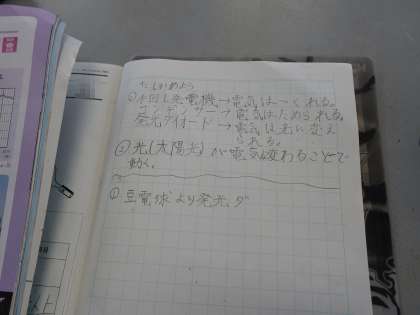 たしかめよう
①手回し発電機→電気はつくれる。
コンデンサー→電気はためられる。
発光ダイオード→電気は光に変え
られる。
②光(太陽光)が電気変わることで
動く。
①豆電球より発光ダ